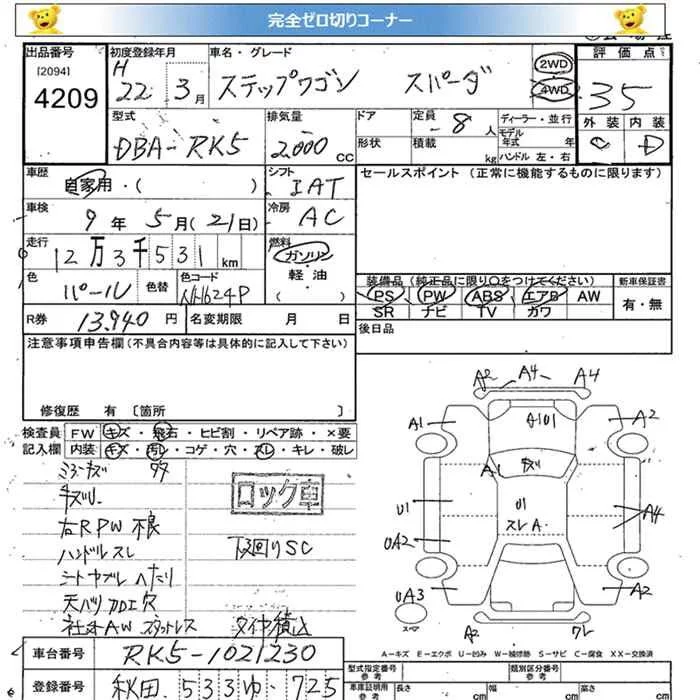 完全ゼロ切りコーナー
出品番号 初度登録年月 車名・グレード 評価点
[2094] H
4209 22年3月 ステップワゴン スパーダ 2WD 4WD 35
型式 排気量 ドア 定員 ディーラー・並行 外装 内装
DBA-RK5 2,000cc 形状 8人 モデル年式 年 C D
積載 kg ハンドル左・右
車歴 シフト セールスポイント (正常に機能するものに限ります)
自家用・( ) IAT
車検 冷房
9年5月(21日) AC
走行 燃料
12万3千531km ガソリン
軽油
色 色替 色コード ( ) 装備品 (純正品に限り○をつけてください) 新車保証書
パール NH624P PS PW ABS エアB AW 有・無
SR ナビ TV カワ
R券 13,940円 名変期限 月 日 後日品
注意事項申告欄 (不具合内容等は具体的に記入して下さい)
修復歴 有 [箇所 ]
検査員 FW キズ・飛石・ヒビ割・リペア跡・×要
記入欄 内装 キズ・汚レ・コゲ・穴・スレ・キレ・破レ
A2 A4 A4
A1 A101 A2
A1 キズ
U1 U1 A4
スレ A
UA2
UA3 A2
スペア
A2 ワレ
ロック車
キズリ
右RPW不良
ハンドルスレ 下廻りSC
シートヤブレ ヘたり
天バリ加工穴
社外AW スタットレス タイヤ積込
A-キズ E-エクボ U-凹み W-補修跡 S-サビ C-腐食 XX-交換済
車台番号 RK5-1021230
型式指定番号 参考 類別区分番号 参考
登録番号 秋田 533 ゆ・725
車庫証明用 参考 長さ cm 幅 cm 高さ cm